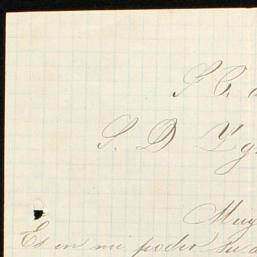 S. C.
S. D Yg
Muy
Es en mi poder Su